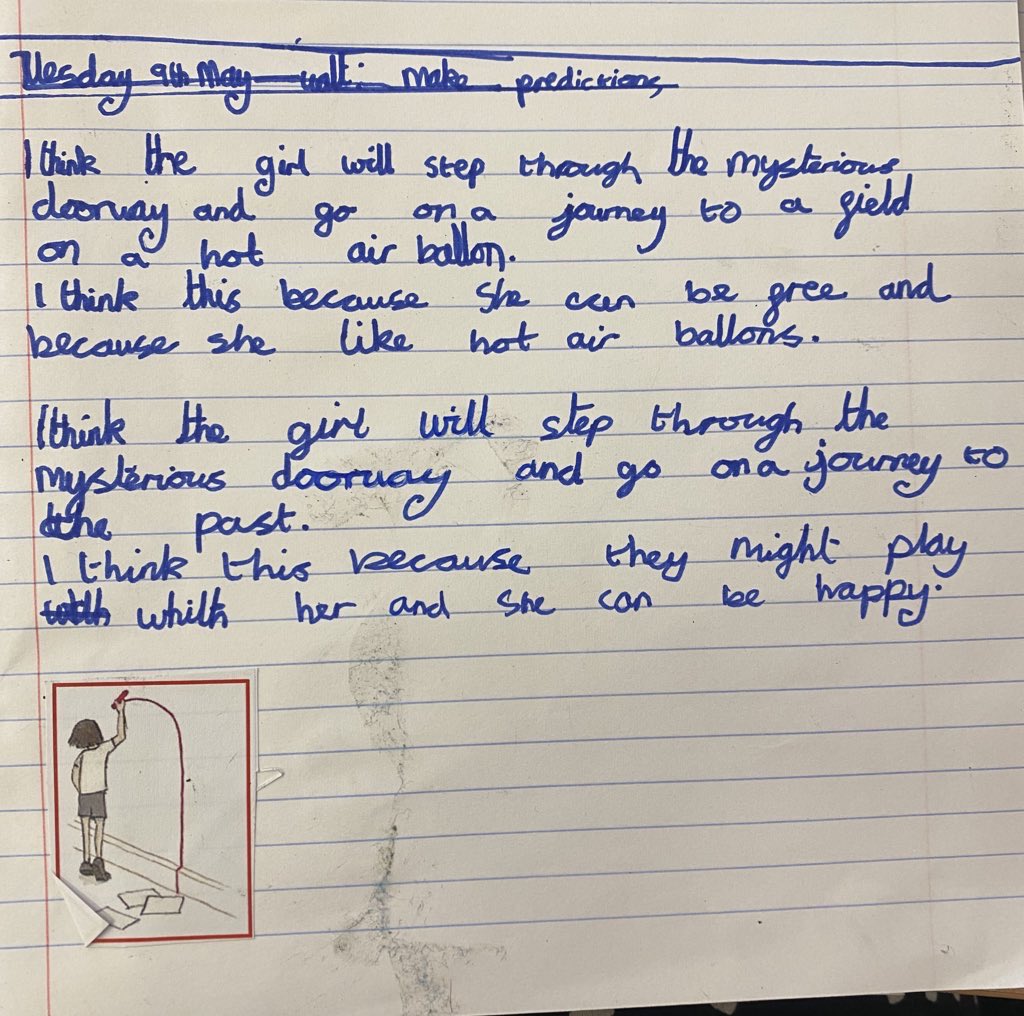 Tuesday 9th May walt: make predictions,
I think the girl will step through the mysterious
doorway and go on a journey to a field
on a hot air ballon.
I think this because she can be free and
because she like hot air ballons.
I think the girl will step through the
mysterious doorway and go on a journey to
the past.
I think this because they might play
whith her and she can be happy.